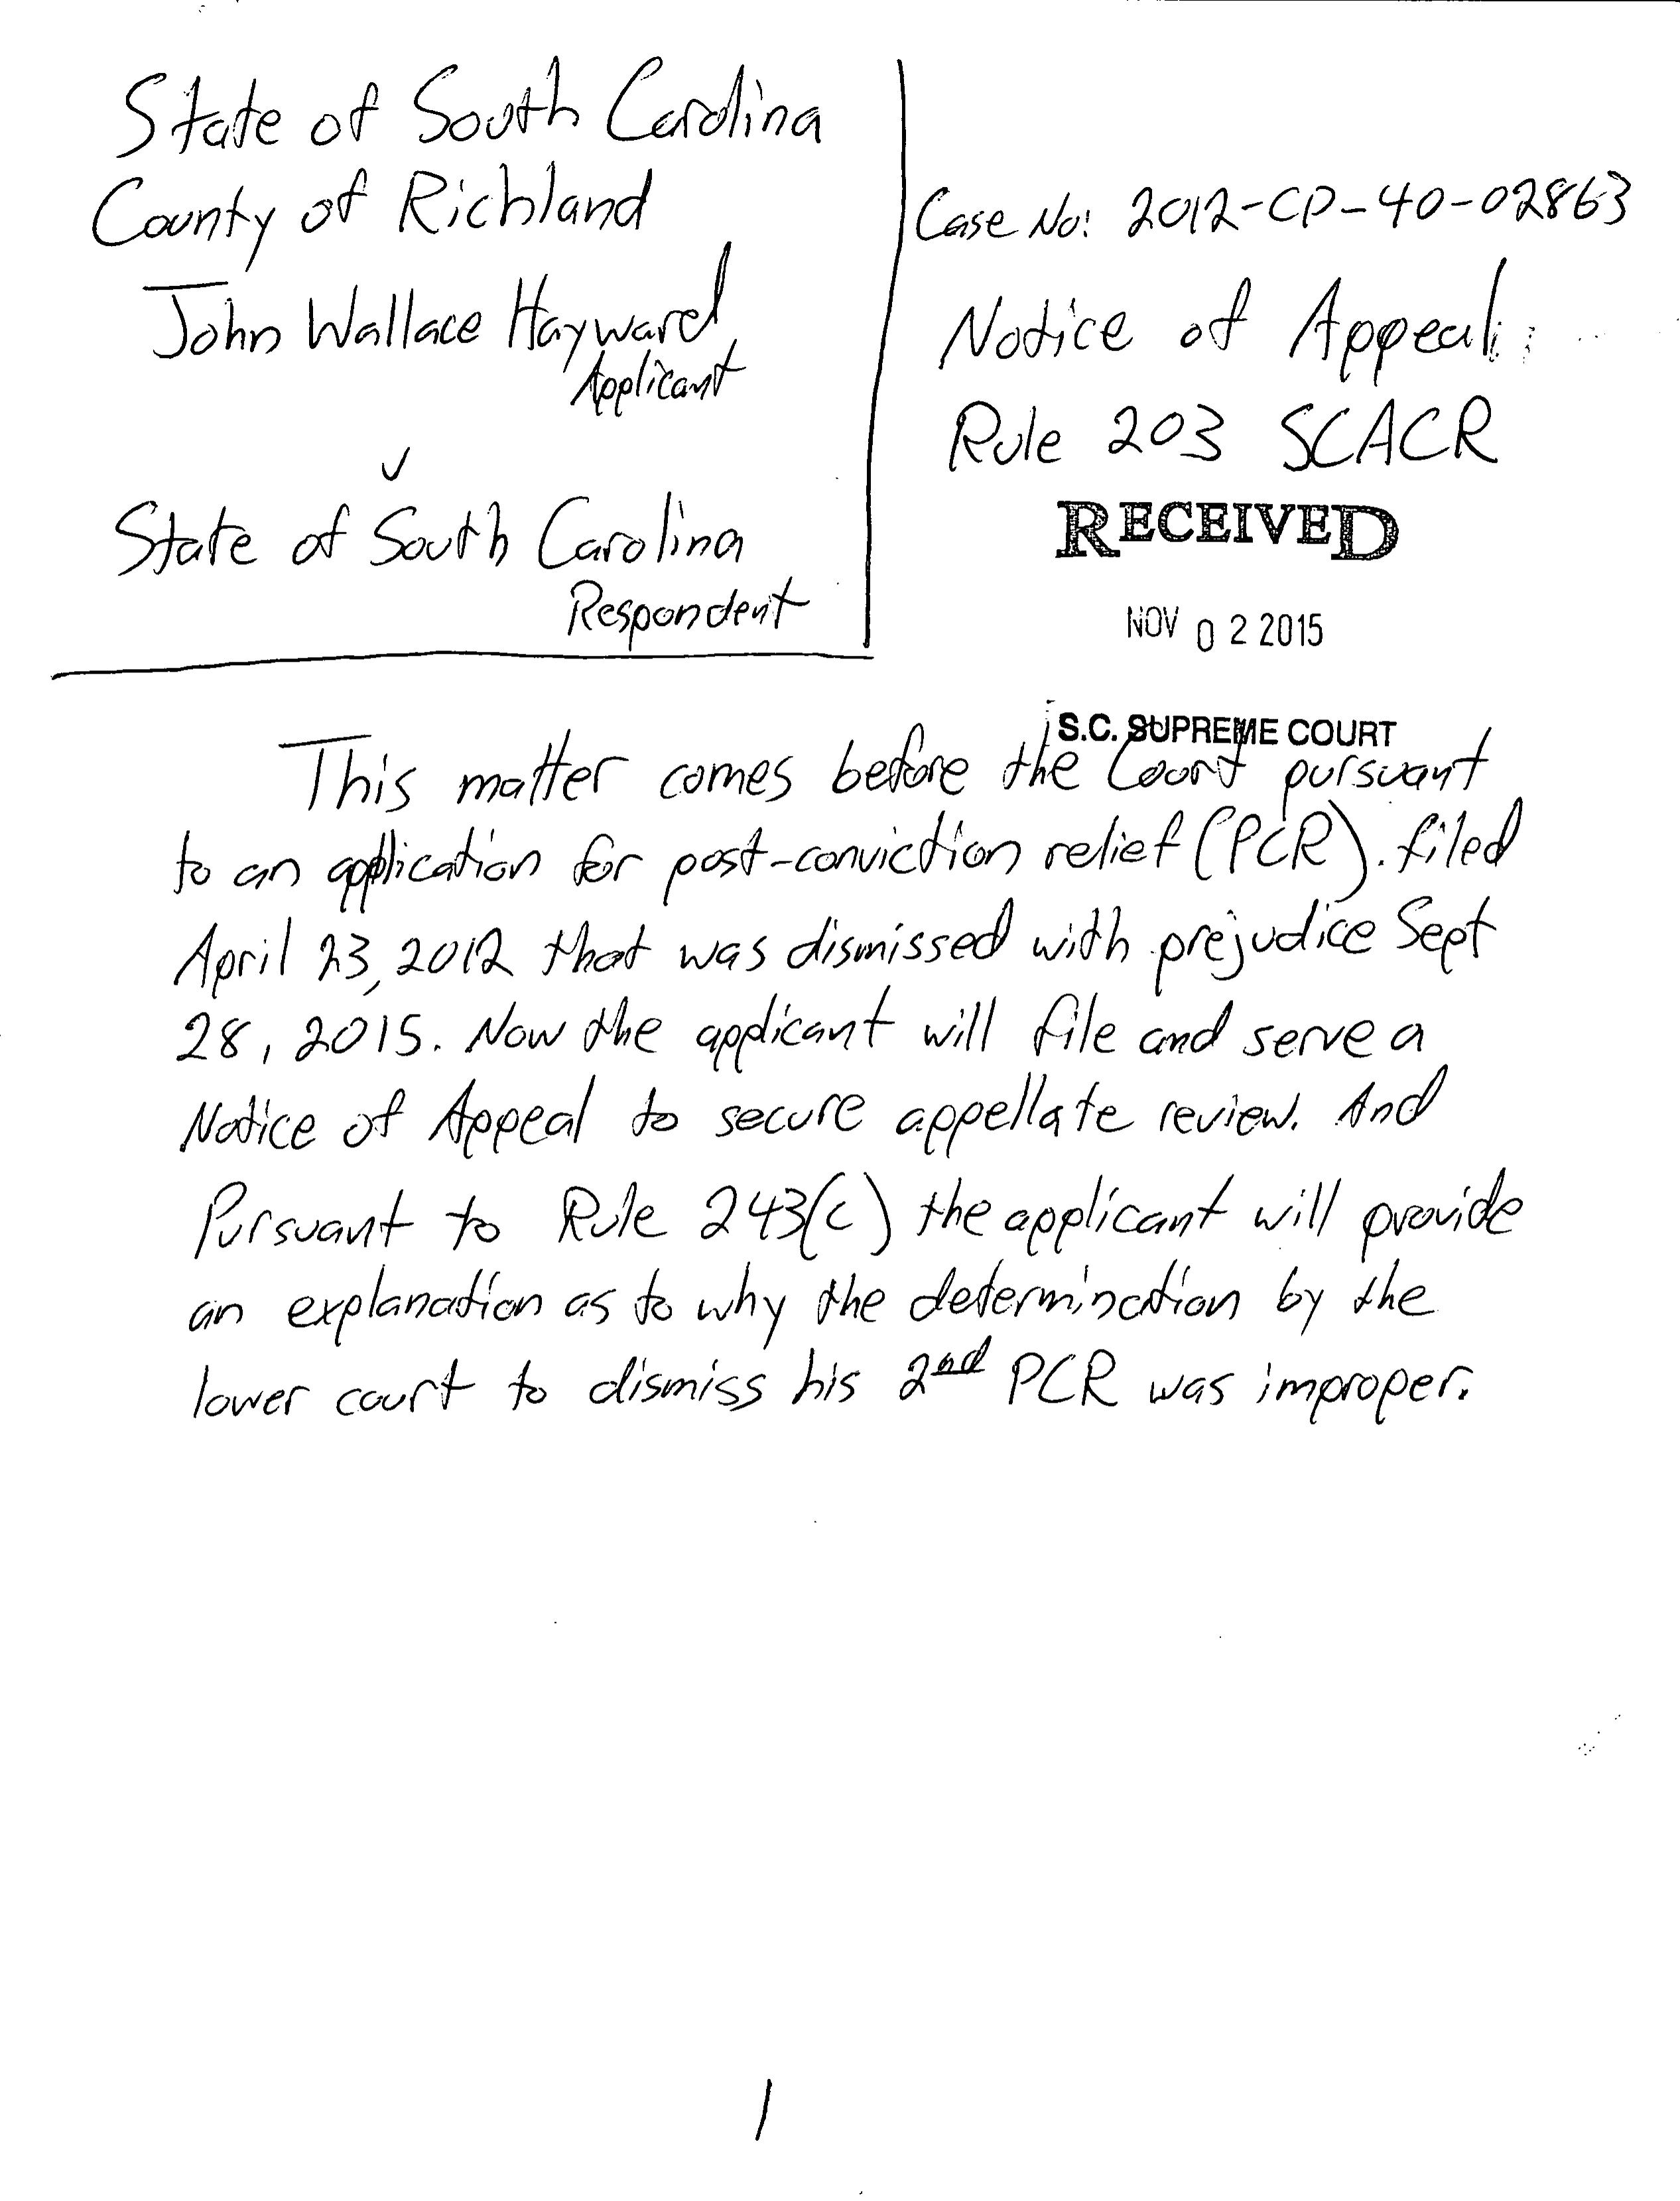 State of South Carolina
County of Richland
John Wallace Hayward
Applicant
v
State of South Carolina
Respondent
Case No: 2012-CP-40-02863
Notice of Appeal
Rule 203 SCACR
RECEIVED
NOV 02 2015
S.C. SUPREME COURT
This matter comes before the Court pursuant
to an application for post-conviction relief (PCR). filed
April 23, 2012 that was dismissed with prejudice Sept
28, 2015. Now the applicant will file and serve a
Notice of Appeal to secure appellate review. And
Pursuant to Rule 243(c) the applicant will provide
an explanation as to why the determination by the
lower court to dismiss his 2nd PCR was improper.
1